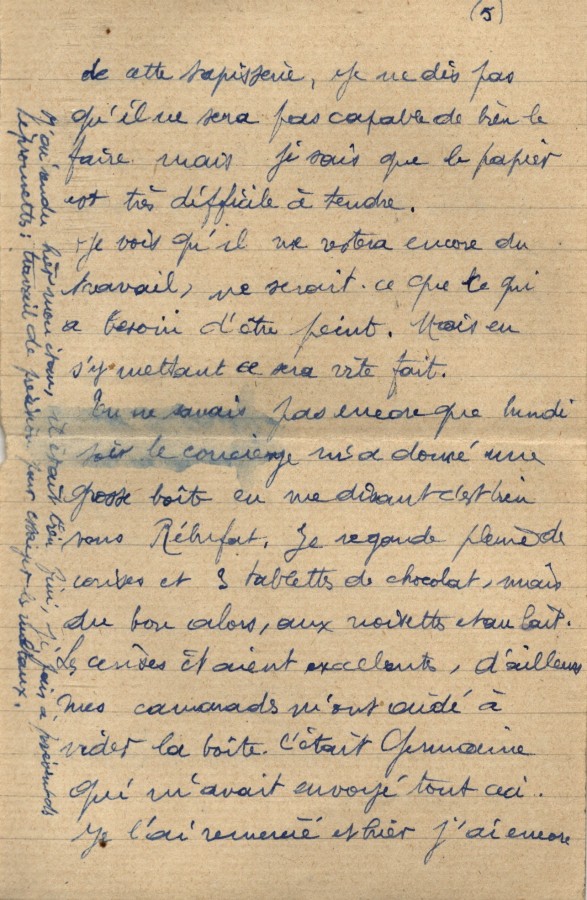 (5)
de cette tapisserie, je ne dis pas
qu'il ne sera pas capable de bien le
faire mais je sais que le papier
est très difficile à tendre.
Je vois qu'il me restera encore du
travail, ne serait-ce que ce qui
a besoin d'être peint. Mais en
s'y mettant ce sera vite fait.
Tu ne savais pas encore que lundi
soir le concierge m'a donné une
grosse boîte en me disant c'est bien
vous Rébufat. Je regarde pleine de
cerises et 3 tablettes de chocolat, mais
du bon alors, aux noisettes et au lait.
Les cerises étaient excellentes, d'ailleurs
mes camarads m'ont aidé à
vider la boîte. C'était Germaine
qui m'avait envoyé tout ceci.
Je l'ai remercié et hier j'ai encore
J'ai rendu hier mon étau, il était bien fini, je fais à présent des
éprouvettes : travail de précision pour essayer les métaux.